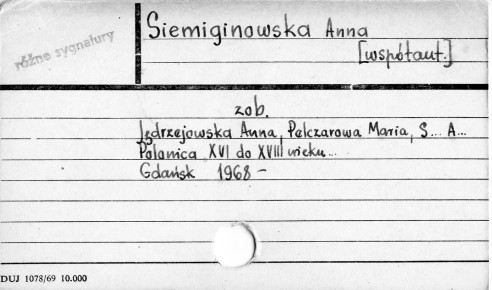 różne sygnatury
Siemiginowska Anna
[współaut.]
zob.
Jędrzejowska Anna, Pelczarowa Maria, S... A...
Polonica XVI do XVIII wieku...
Gdańsk 1968 –
DUJ 1078/69 10.000